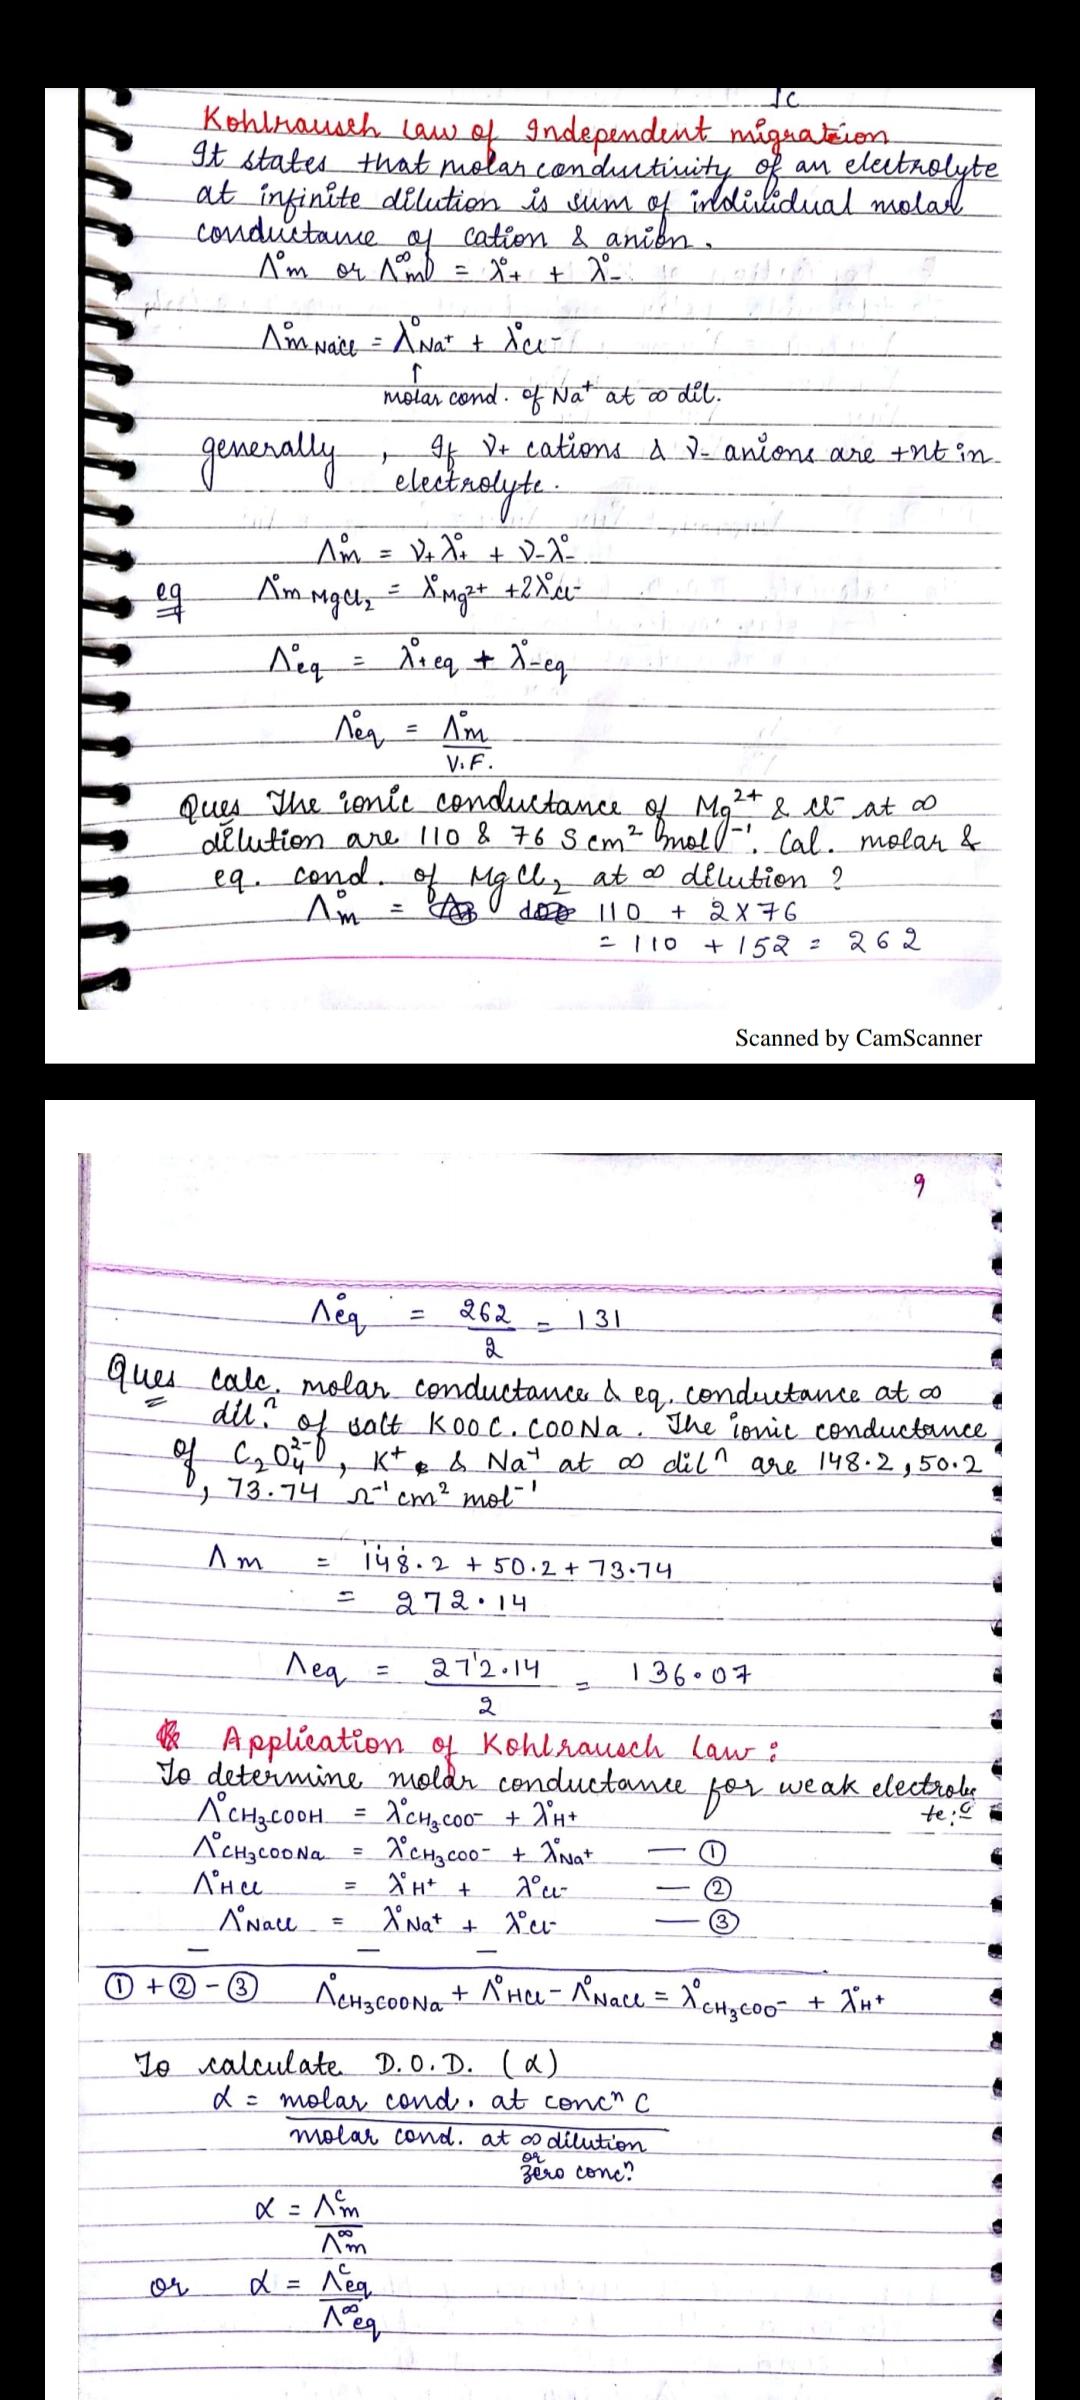 √c
Kohlrausch Law of Independent migration
It states that molar conductivity of an electrolyte
at infinite dilution is sum of individual molar
conductance of cation & anion.
Λ°m or Λ∞m = λ°+ + λ°-
Λ°m NaCl = λ°Na+ + λ°Cl-
↑
molar cond. of Na+ at ∞ dil.
generally, If ν+ cations & ν- anions are +nt in
electrolyte.
Λ°m = ν+λ°+ + ν-λ°-
eg Λ°m MgCl₂ = λ°Mg²+ + 2λ°Cl-
Λ°eq = λ°+eq + λ°-eq
Λ°eq = Λ°m
V.F.
Ques The ionic conductance of Mg²+ & Cl- at ∞
dilution are 110 & 76 S cm² mol⁻¹. Cal. molar &
eq. cond. of MgCl₂ at ∞ dilution ?
Λ°m = 110 + 2×76
= 110 + 152 = 262
Scanned by CamScanner
9
Λ°eq = 262/2 = 131
Ques calc. molar conductance & eq. conductance at ∞
dilⁿ. of salt KOOC.COONa. The ionic conductance
of C₂O₄²⁻, K+ & Na+ at ∞ dilⁿ are 148.2, 50.2
, 73.74 Ω⁻¹ cm² mol⁻¹
Λm = 148.2 + 50.2 + 73.74
= 272.14
Λeq = 272.14/2 = 136.07
Application of Kohlrausch Law :
To determine molar conductance for weak electroly
te :-
Λ°CH₃COOH = λ°CH₃COO- + λ°H+
Λ°CH₃COONa = λ°CH₃COO- + λ°Na+ — ①
Λ°HCl = λ°H+ + λ°Cl- — ②
Λ°NaCl = λ°Na+ + λ°Cl- — ③
— — —
① + ② - ③ Λ°CH₃COONa + Λ°HCl - Λ°NaCl = λ°CH₃COO- + λ°H+
To calculate D.O.D. (α)
α = molar cond. at concⁿ C
molar cond. at ∞ dilution
or
zero concⁿ
α = Λᶜm
Λ∞m
or α = Λᶜeq
Λ∞eq